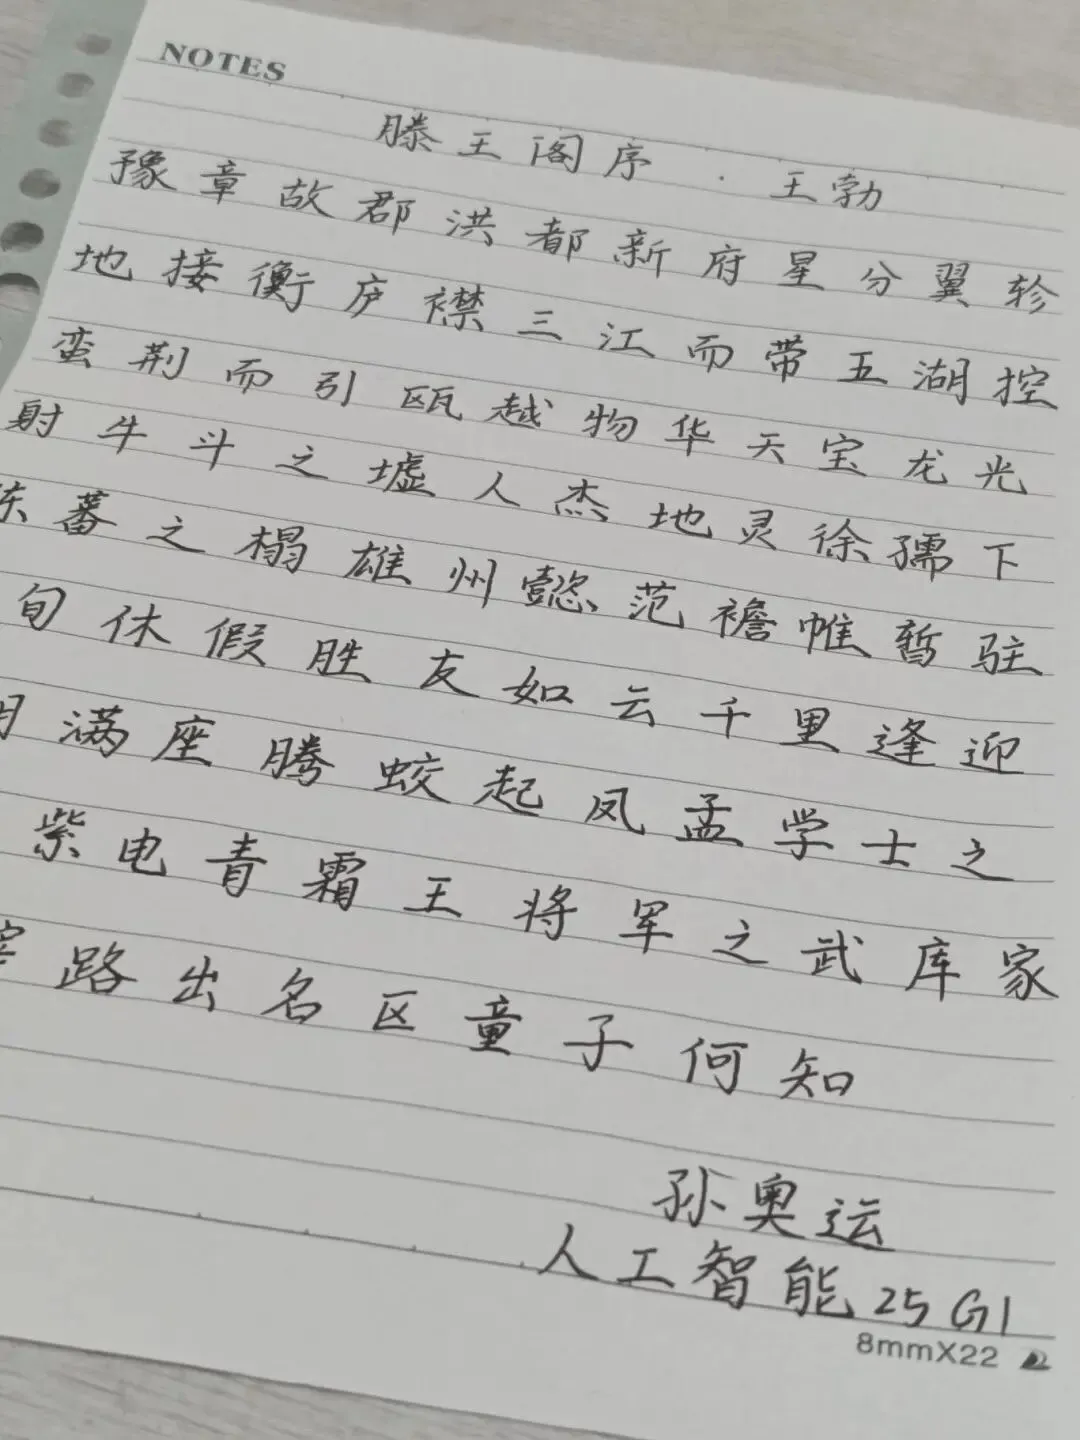 NOTES
滕王阁序 · 王勃
豫章故郡洪都新府星分翼轸
地接衡庐襟三江而带五湖控
蛮荆而引瓯越物华天宝龙光
射牛斗之墟人杰地灵徐孺下
陈蕃之榻雄州懿范襜帷暂驻
旬休假胜友如云千里逢迎
满座腾蛟起凤孟学士之
紫电青霜王将军之武库家
路出名区童子何知
孙奥运
人工智能25G1
8mmX22